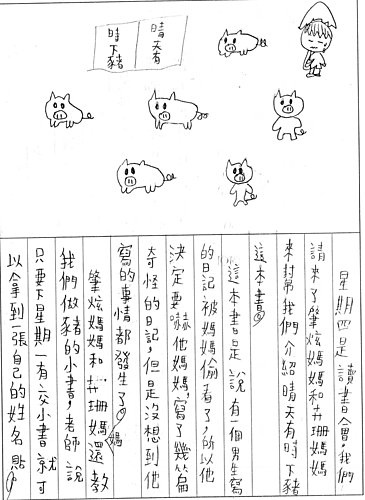 晴天有
時下豬
星期四是讀書會,我們
請來了肇炫媽媽和卉珊媽媽
來幫我們介紹晴天有時下豬
這本書。
這本書是說有一個男生寫
的日記被媽媽偷看了,所以他
決定要嚇他媽媽,寫了幾篇
奇怪的日記,但是沒想到他
寫的事情都發生了。
肇炫媽媽和卉珊媽媽還教
我們做豬的小書,老師說
只要下星期一有交小書就可
以拿到一張自己的姓名貼。